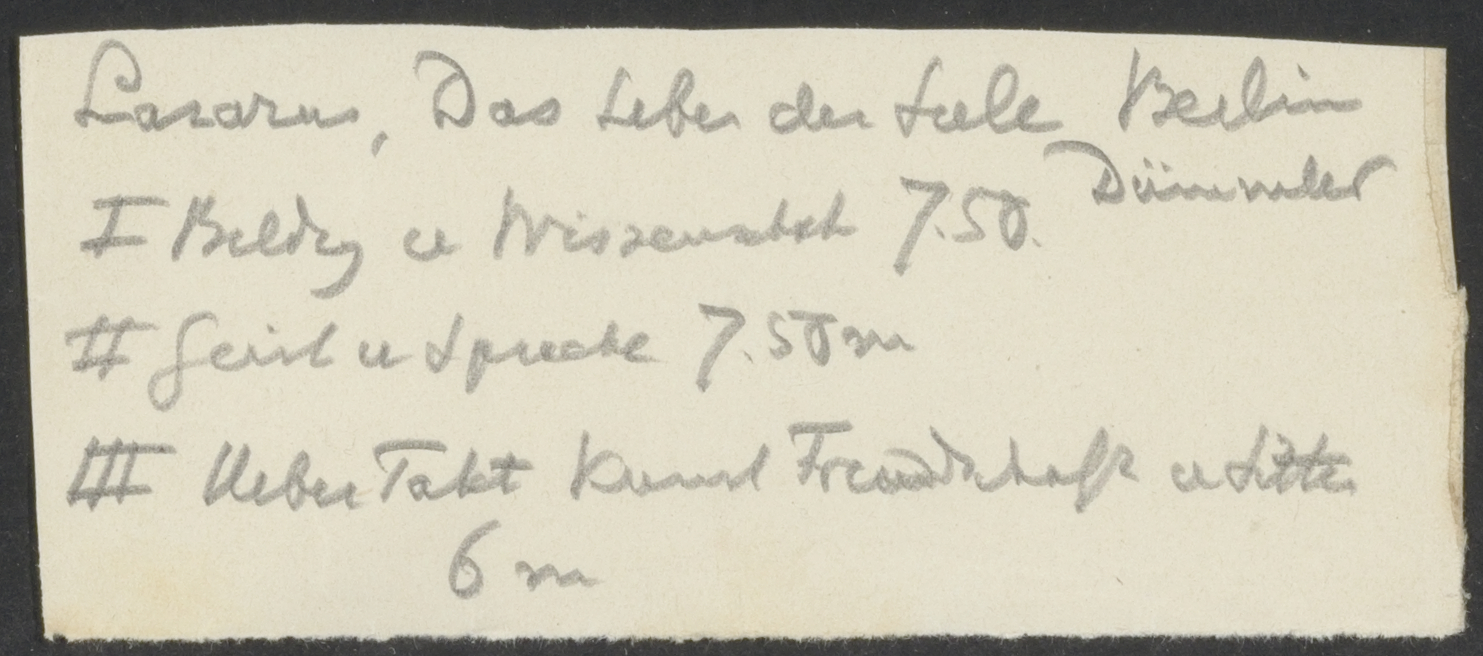 Lazarus, Das Leben der Seele Berlin
Dümmler
I Bildg u Wissenschaft 7.50.
II Geist u Sprache 7.50 m
III Ueber Takt Kunst Freundschaft u Sitte
6 m